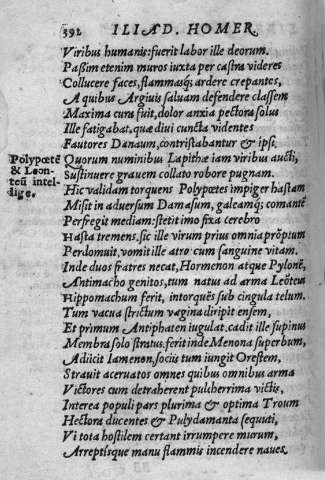 392 ILIAD. HOMER.
Viribus humanis: fuerit labor ille deorum.
Paßim etenim muros iuxta per castra videres
Collucere faces, flammasq; ardere crepantes,
A quibus Argiuis saluam defendere classem
Maxima cura fuit, dolor anxia pectora solus
Ille fatigabat, quæ diui cuncta videntes
Fautores Danaum, contristabantur & ipsi.
Polypœtē & Leonteū intellige.
Quorum numinibus Lapithæ iam viribus aucti,
Sustinuere grauem collato robore pugnam.
Hic validam torquens Polypœtes impiger hastam
Misit in aduersum Damasum, galeamq; comantē
Perfregit mediam: stetit imo fixa cerebro
Hasta tremens, sic ille virum prius omnia prōptum
Perdomuit, vomit ille atro cum sanguine vitam.
Inde duos fratres necat, Hormenon atque Pylonē,
Antimacho genitos, tum natus ad arma Leōteus
Hippomachum ferit, intorquēs sub cingula telum.
Tum vacua strictum vagina diripit ensem,
Et primum Antiphaten iugulat. cadit ille supinus
Membra solo stratus. ferit inde Menona superbum,
Adiicit Iamenon, sociis tum iungit Orestem,
Strauit aceruatos omnes quibus omnibus arma
Victores cum detraherent pulcherrima victis,
Interea populi pars plurima & optima Troum
Hectora ducentes & Pulydamanta sequuti,
Vi tota hostilem certant irrumpere murum,
Arreptisque manu flammis incendere naues.